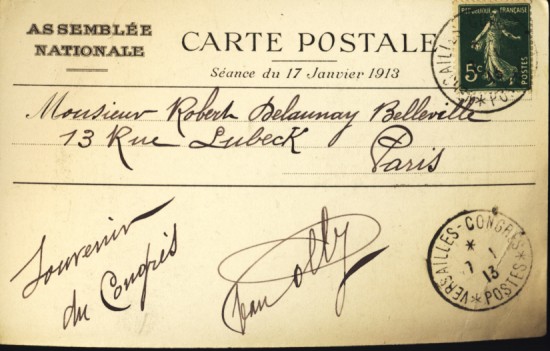 ASSEMBLÉE
NATIONALE
CARTE POSTALE
Séance du 17 Janvier 1913
RÉPUBLIQUE FRANÇAISE
5c
POSTES
Monsieur Robert Delaunay Belleville
13 Rue Lubeck
Paris
Souvenir
du Congrès
VERSAILLES-CONGRÈS
13
POSTES